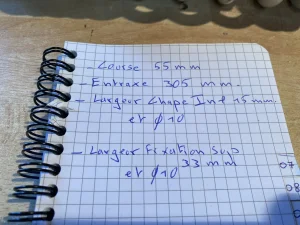 - Course 55 mm
- Entraxe 305 mm.
- Largeur Chape Inf 15 mm
et φ10
- Largeur Fixation Sup
33 mm
et φ10
07
08